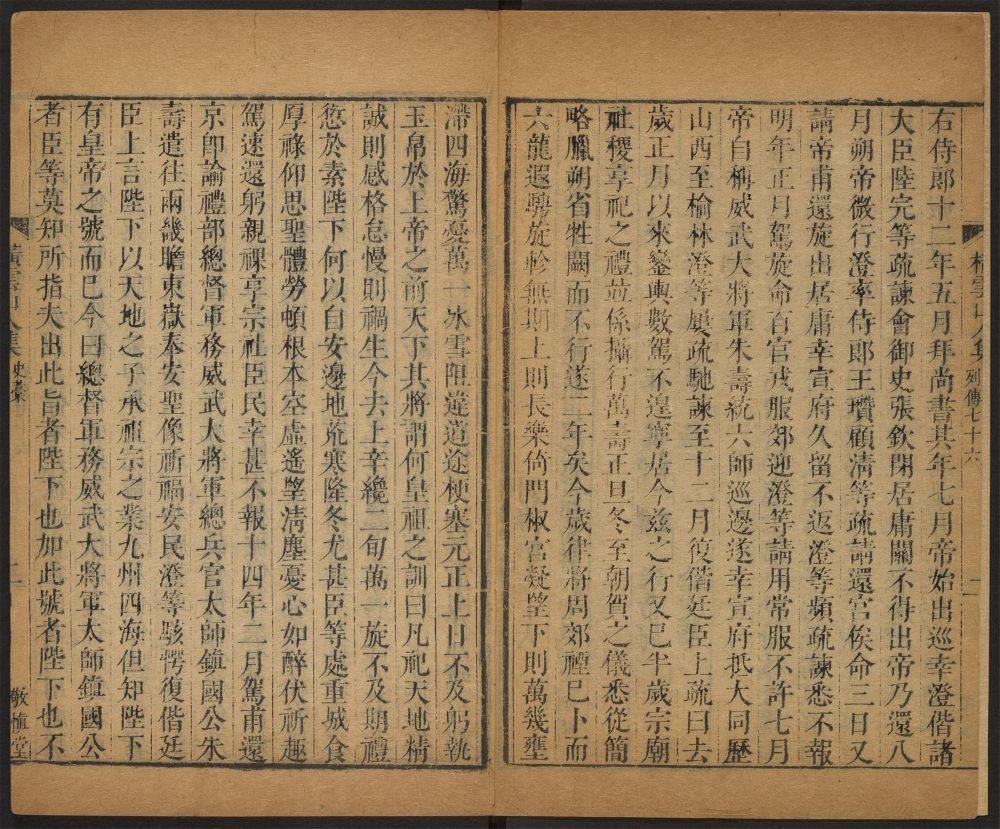 列傳七十六
右侍郎十二年五月拜尚書其年七月帝始出巡幸澄偕諸
大臣陸完等疏諫會御史張欽閉居庸關不得出帝乃還八
月朔帝微行澄率侍郎王瓚顧清等疏請還宮俟命三日又
請帝甫還旋出居庸幸宣府久留不返澄等頻疏諫悉不報
明年正月駕旋命百官戎服郊迎澄等請用常服不許七月
帝自稱威武大將軍朱壽統六師巡邊遂幸宣府抵大同歷
山西至榆林澄等屢疏馳諫至十二月復偕廷臣上疏曰去
歲正月以來鑾輿數駕不遑寧居今茲之行又已半歲宗廟
社稷享祀之禮並係攝行萬壽正旦冬至朝賀之儀悉從簡
略臘朔省牲闕而不行遂二年矣今歲律將周郊禋已卜而
六龍遐騁旋軫無期上則長樂倚門椒宮凝望下則萬幾壅
滯四海驚憂萬一冰雪阻違道途梗塞元正上日不及躬執
玉帛於上帝之前天下其將謂何皇祖之訓曰凡祀天地精
誠則感格怠慢則禍生今去上辛纔二旬萬一旋不及期禮
愆於素陛下何以自安邊地荒寒隆冬尤甚臣等處重城食
厚祿仰思聖體勞頓根本空虛遙望清塵憂心如醉伏祈趣
駕速還躬親祼享宗社臣民幸甚不報十四年二月駕甫還
京即諭禮部總督軍務威武大將軍總兵官太師鎮國公朱
壽遣往兩畿瞻東嶽奉安聖像祈福安民澄等駭愕復偕廷
臣上言陛下以天地之子承祖宗之業九州四海但知陛下
有皇帝之號而已今曰總督軍務威武大將軍太師鎮國公
者臣等莫知所指夫出此旨者陛下也加此號者陛下也不
史藁
二
敬慎堂